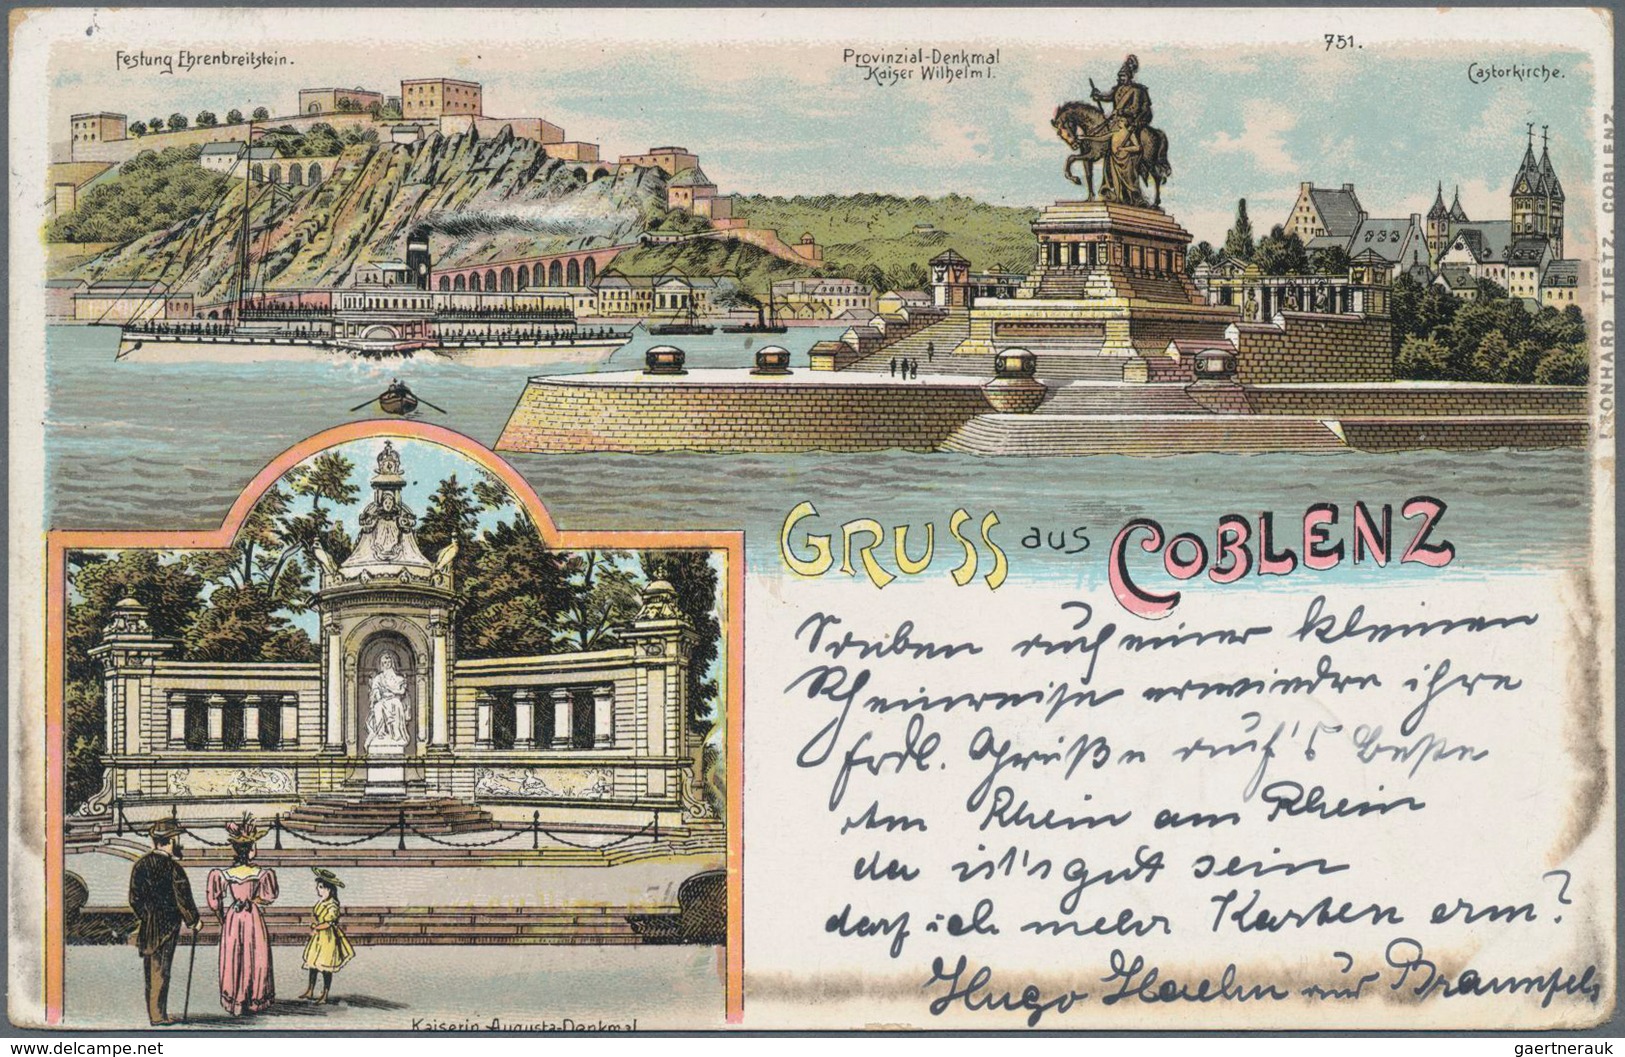 Festung Ehrenbreitstein.
Provinzial-Denkmal
Kaiser Wilhelm I.
751.
Castorkirche.
LEONHARD TIETZ, COBLENZ.
GRUSS aus COBLENZ
Soeben auf einer kleinen
Rheinreise erwiedre ihre
frdl. Grüße auf's beste
Am Rhein am Rhein
da ist's gut sein
darf ich mehr Karten erw?
Hugo Haehn aus Braunfels
Kaiserin Augusta-Denkmal
www.delcampe.net
gaertnerauk